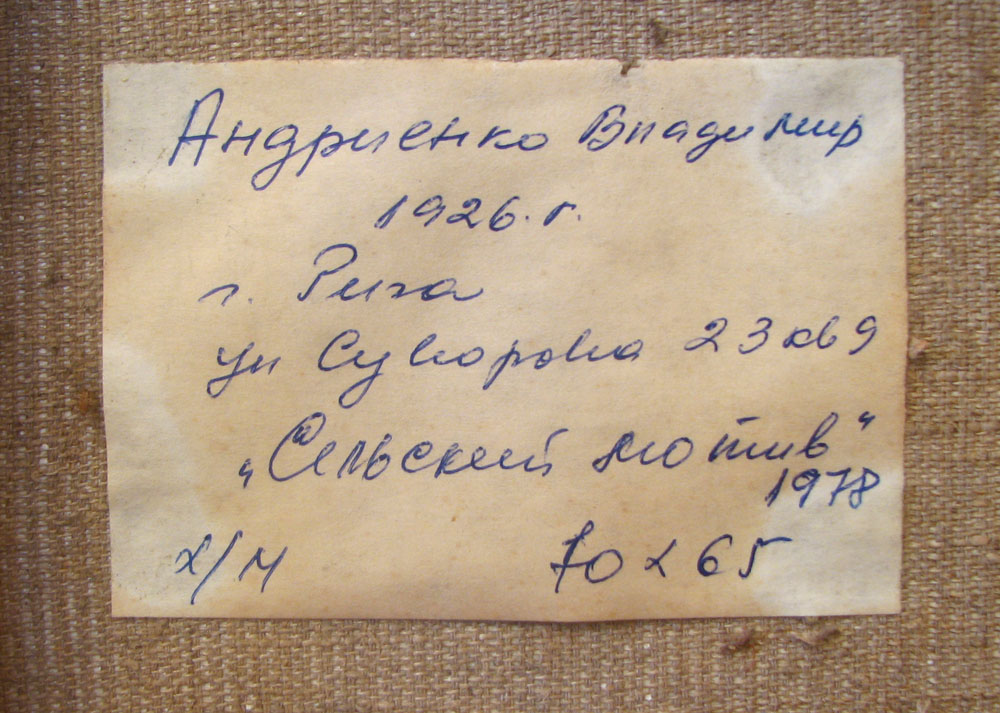 Андриенко Владимир
1926. г.
г. Рига
ул Суворова 23 кв 9
„Сельский мотив"
1978
х/м 70 х 65